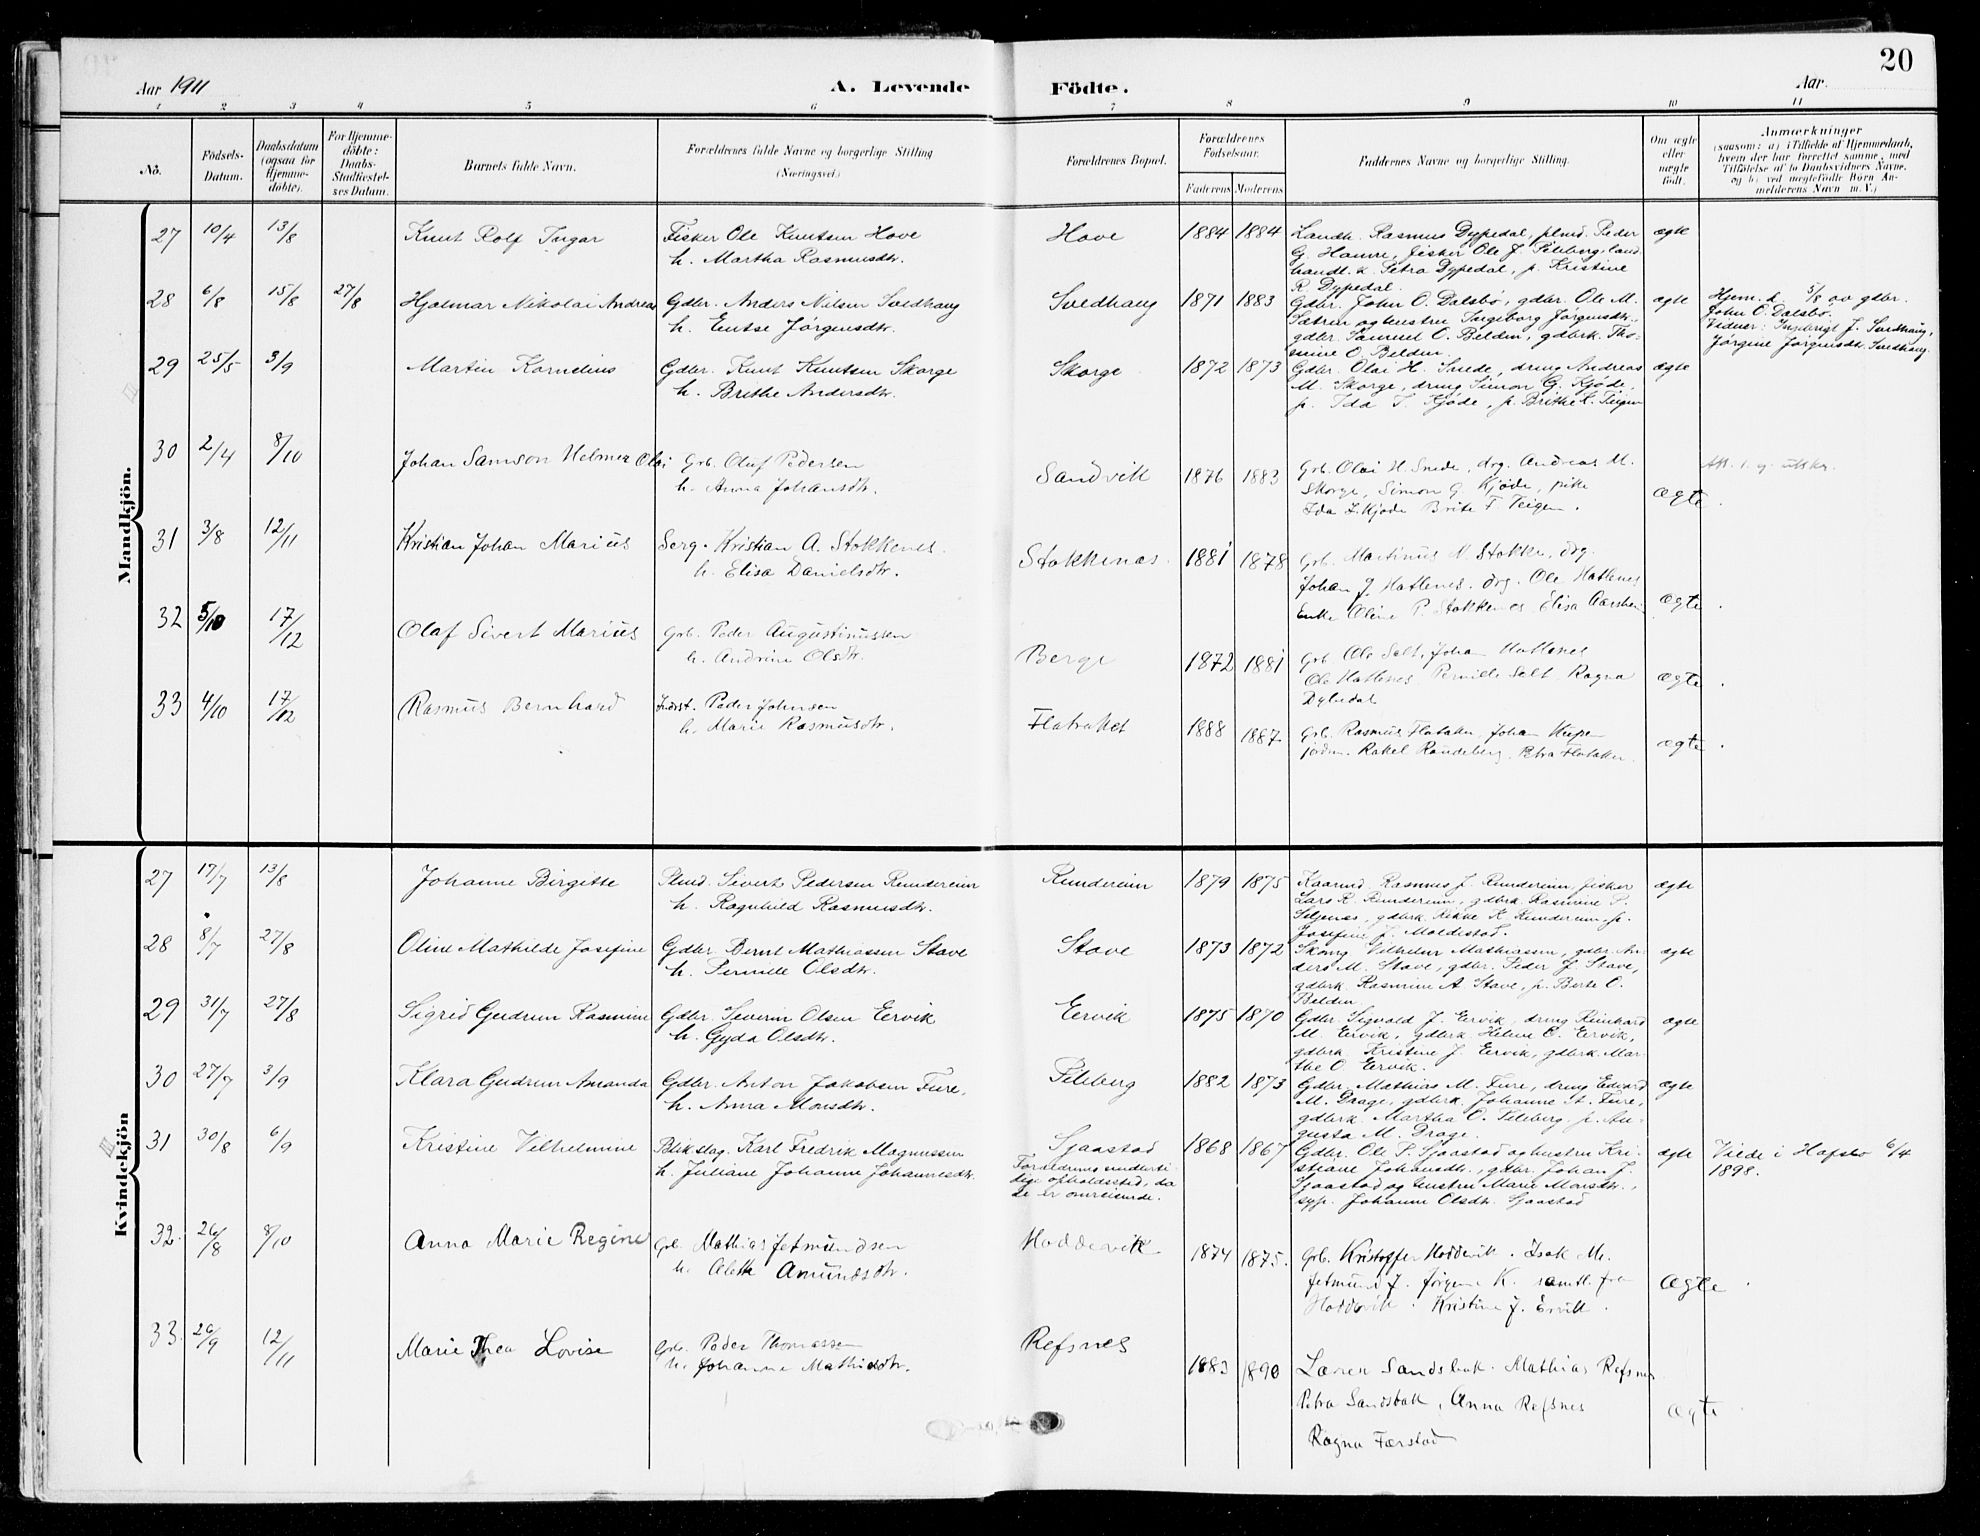 20
Aar 1911
A. Levende
Födte.
Aar
1 2 3 4 5 6 7 8 9 10 11
No.
Födsels-
Datum.
Daabsdatum
(ogsaa for
Hjemme-
döbte).
For Hjemme-
döbte:
Daabs-
Stadfæstel-
ses Datum.
Barnets fulde Navn.
Forældrenes fulde Navne og borgerlige Stilling
(Næringsvei.)
Forældrenes Bopæl.
Forældrenes
Födselsaar.
Faderens Moderens
Faddernes Navne og borgerlige Stilling.
Om ægte
eller
uægte
född.
Anmærkninger
(saasom: a) i Tilfælde af Hjemmedaab,
hvem der har forrettet samme, med
Tilföielse af to Daabsvidners Navne,
og b) ved uægtefödte Börn An-
melderens Navn m. V.)
Mandkjön.
27 10/4 13/8 Knut Rolf Ingar
Fisker Ole Knutsen Hove
h. Martha Rasmusdtr.
Hove 1884 1884
Landh. Rasmus Dypedal, plmd. Peder
G. Hamre, fisker Ole J. Pileberg, land
handl. k. Petra Dypedal, p. Kristine
R. Dypedal.
ægte
28 6/8 15/8 27/8 Hjalmar Nikolai Andreas
Gdbr. Anders Nilsen Svedhaug
h. Entse Jørgensdtr.
Svedhaug 1871 1883
Gdbr. John O. Dalsbø, gdbr. Ole M.
Sætren og hustru Ingeborg Jørgensdtr.,
gdbr. Samuel O. Belden, gdbrk. Tho-
mine O. Belden.
ægte
Hjem. d. 5/8 av gdbr.
John O. Dalsbø.
Vidner: Ingebrigt J. Svedhaug,
Jørgine Jørgensdtr. Svedhaug.
29 25/5 3/9 Martin Kornelius
Gdbr. Knut Knutsen Skorge
h. Brithe Andersdtr.
Skorge 1872 1873
Gdbr. Olai H. Snede, dreng Andreas
M. Skorge, dreng Simon G. Kjøde,
p. Ida I. Kjøde, p. Brithe K. Teigen
ægte
30 2/4 8/10 Johan Samson Helmer Olai
Grb. Oluf Pedersen
h. Anna Johansdtr.
Sandvik 1876 1883
Grb. Olai H. Snede, drg. Andreas M.
Skorge, Simon G. Kjøde, pike
Ida I. Kjøde Brite F. Teigen.
ægte.
31 3/8 12/11 Kristian Johan Marius
Serg. Kristian A. Stokkenes.
h. Elisa Danielsdtr.
Stokkenes. 1881 1878
Grb. Martinus N. Stokke, drg.
Johan J. Hatlenes. drg. Ole Hatlenes
Enke Oline P. Stokkenes Elisa Aarsheim
ægte.
32 5/10 17/12 Olaf Sivert Marius
Grb. Peder Augustinussen
h. Andrine Olsdtr.
Berge 1872 1881
Grb. Ole Selt, Johan Hatlenes
Ole Hatlenes Pernille Selt, Ragna
Dypedal
ægte.
33 4/10 17/12 Rasmus Bernhard
Peder Johnsen
h. Marie Rasmusdtr.
Flatraket 1888 1887
Grb. Rasmus Flataker, Johan
Rakel Randeberg. Petra Flataker.
ægte.
Kvindekjön
27 17/7 13/8 Johanne Birgitte
Plmd. Sivert Pedersen Rundereim
h. Ragnhild Rasmusdtr.
Rundereim 1879 1875
Kaarmd. Rasmus J. Rundereim, fisker
Lars R. Rundereim, gdbrk. Rasmine P.
Seljenæs, gdbrk. Rikke K. Rundereim, p.
Josefine J. Moldestad.
ægte
28 8/7 27/8 Oline Mathilde Josefine
Gdbr. Bernt Mathiassen Stave
h. Pernille Olsdtr.
Stave 1873 1872
Skomg. Vilhelm Mathiassen, gdbr. An-
ders M. Stave, gdbr. Peder J. Stave,
gdbrk. Rasmine A. Stave, p. Berte O.
Belden.
ægte
29 31/7 27/8 Sigrid Gudrun Rasmine
Gdbr. Severin Olsen Eervik
h. Gyda Olsdtr.
Eervik 1875 1870
Gdbr. Sigvald J. Eervik, dreng Reinhard
M. Eervik, gdbrk. Helene O. Eervik,
gdbrk. Kristine J. Eervik, gdbrk. Mar-
the O. Eervik.
ægte
30 27/7 3/9 Klara Gudrun Amanda
Gdbr. Anton Jakobsen Fure,
h. Anna Monsdtr.
Pileberg 1882 1873
Gdbr. Mathias M. Fure, dreng Edvard
M. Drage, gdbrk. Johanne A. Fure,
gdbrk. Martha O. Pileberg, p. Au-
gusta M. Drage.
ægte
31 30/8 6/9 Kristine Vilhelmine
Blikslag. Karl Fredrik Magnussen
h. Juliane Johanne Johannesdtr.
Sjaastad
Forældrenes midlerti-
dige opholdssted, da
de er omreisende.
1868 1867
Gdbr. Ole P. Sjaastad og hustru Kri-
stiane Johansdtr., gdbr. Johan J.
Sjaastad og hustru Marie Monsdtr.,
syp. Johanne Olsdtr. Sjaastad
ægte
Viede i Hafslo 6/4
1898.
32. 26/8 8/10 Anna Marie Regine
Grb. Mathias Jetmundsen
h. Alette Amundsdtr.
Hoddevik 1874 1875.
Grb. Kristoffer Hoddevik. Isak M.
Jetmund J. Jørgine K. samtl. fra
Hoddevik. Kristine J. Ervik.
ægte.
33. 26/9 12/11 Marie Thea Lovise
Grb. Peder Thomassen
h. Johanne Mathiasdtr.
Refsnes 1883 1890
Laren Sandsbak. Mathias Refsnes
Petra Sandsbak, Anna Refsnes
Ragna Færstad
ægte.